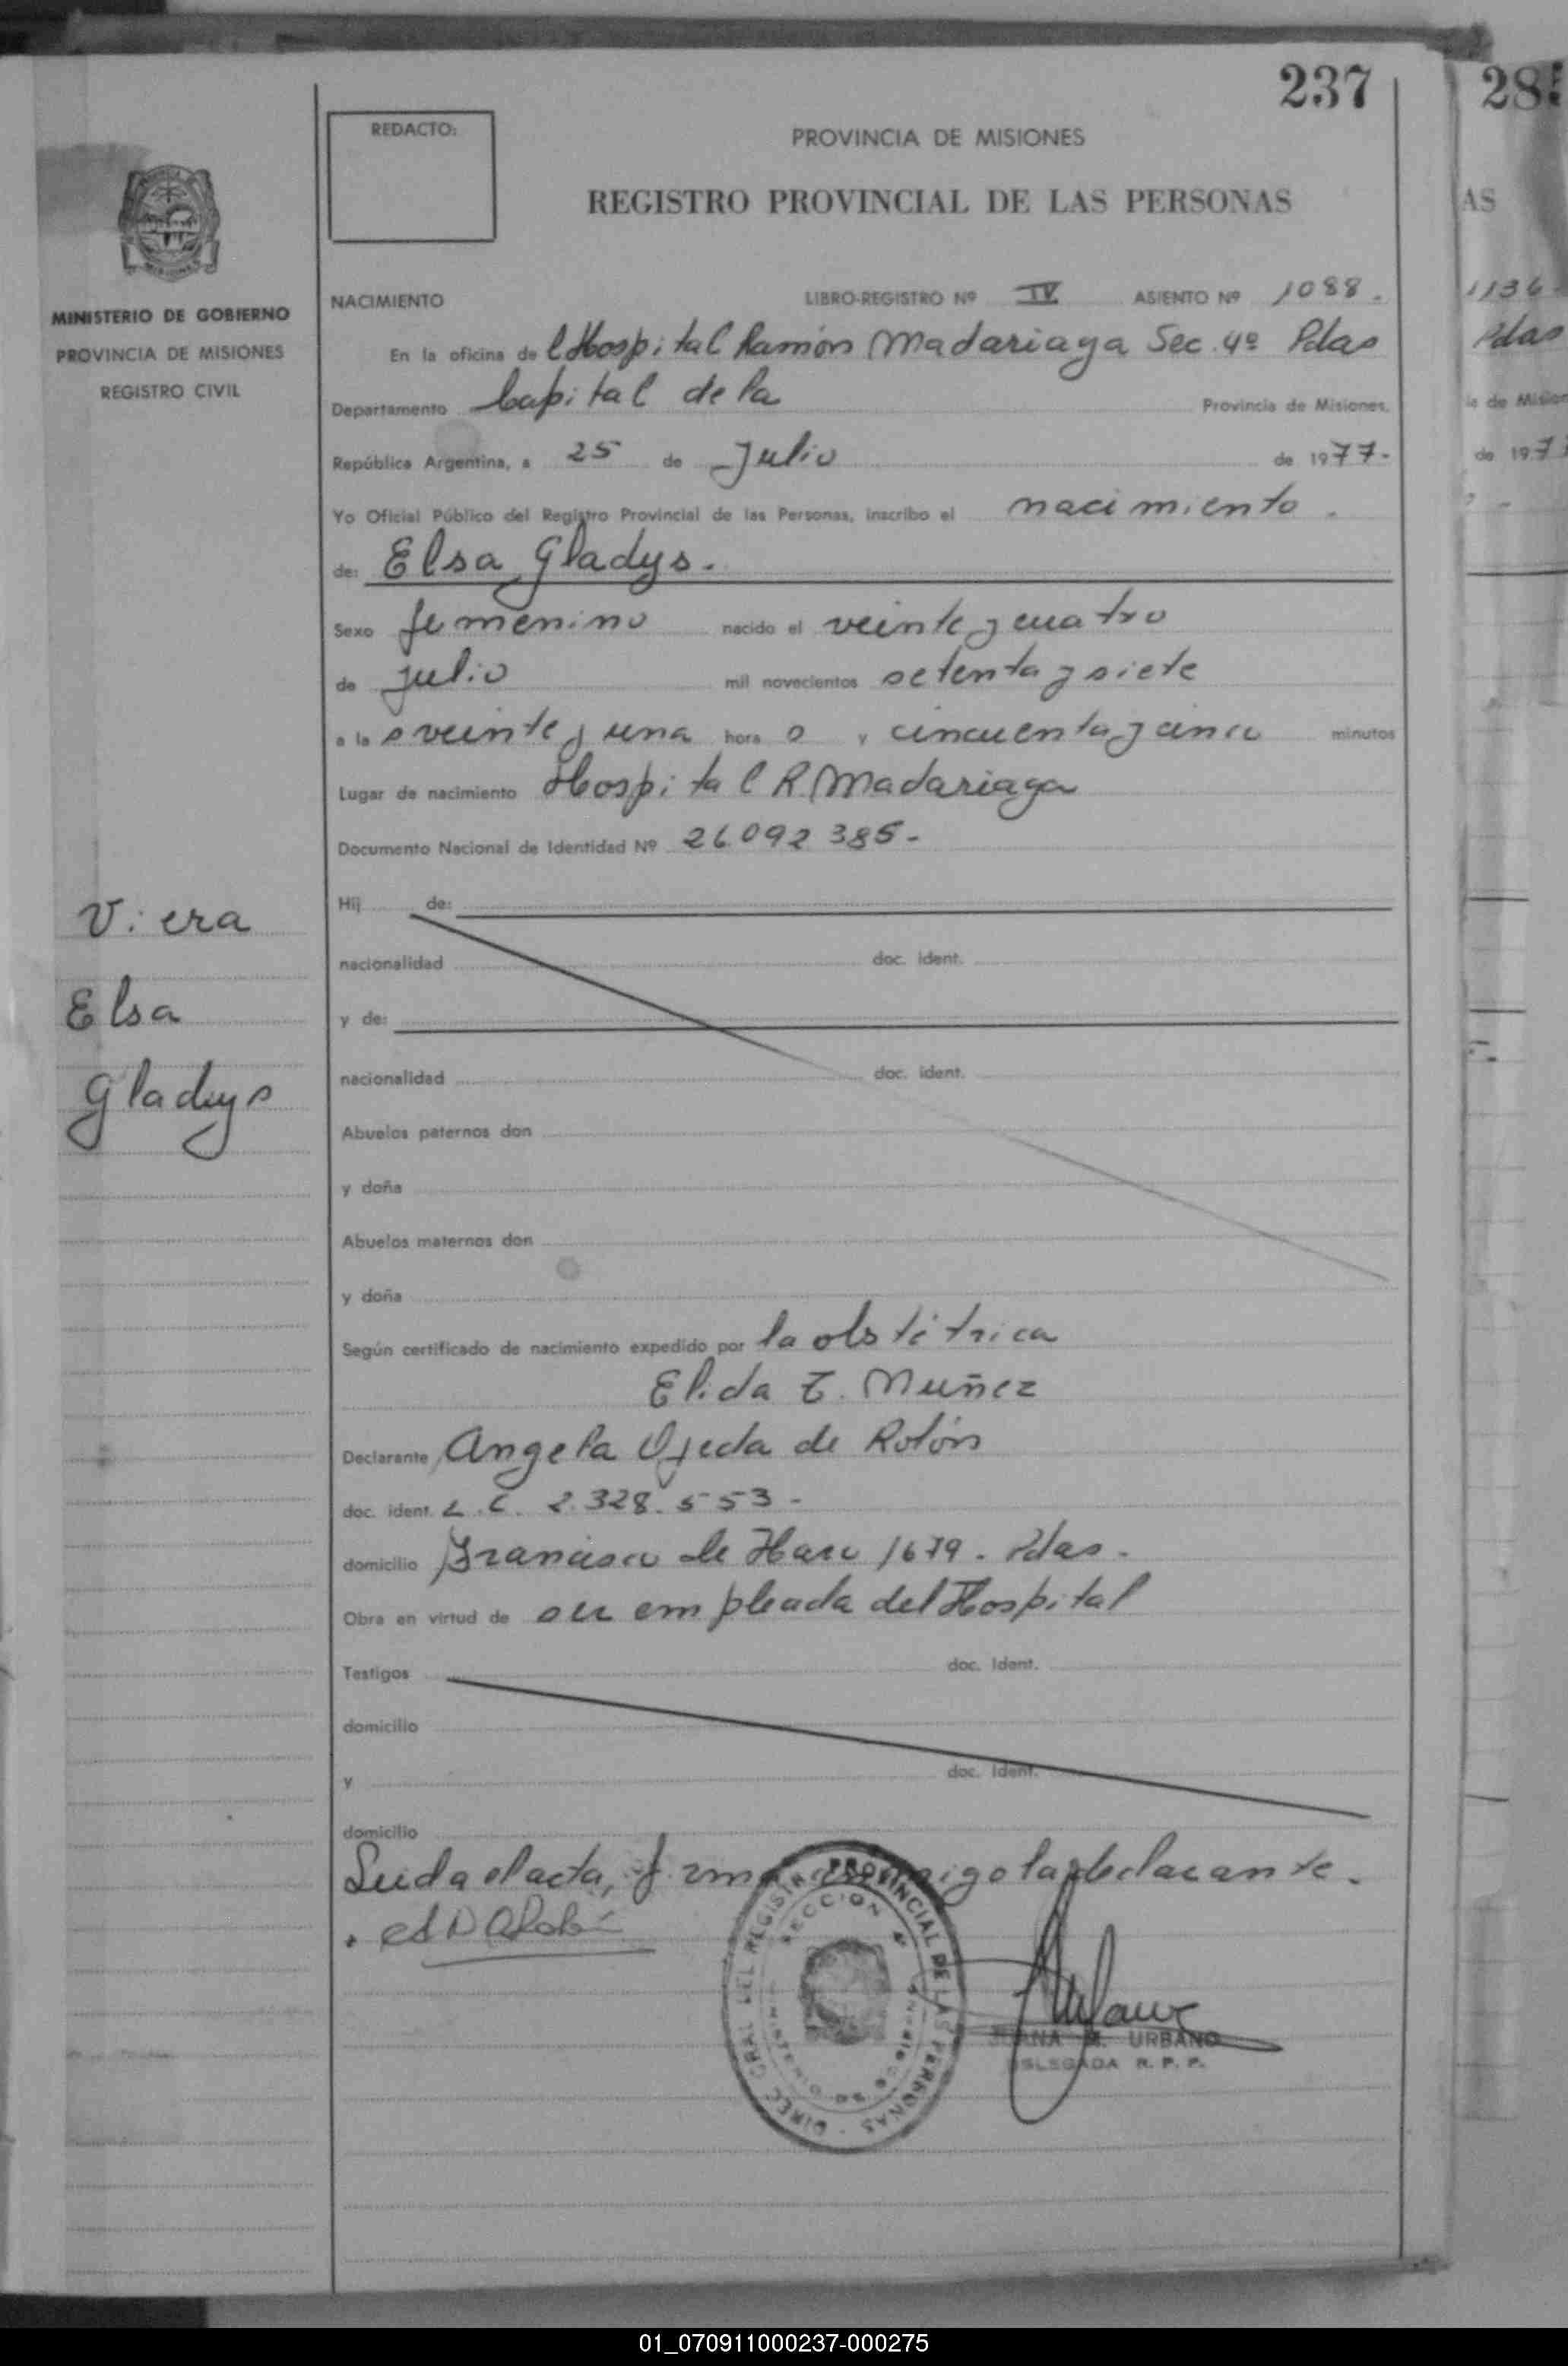 237
28
REDACTO:
PROVINCIA DE MISIONES
REGISTRO PROVINCIAL DE LAS PERSONAS
AS
MINISTERIO DE GOBIERNO
PROVINCIA DE MISIONES
REGISTRO CIVIL
NACIMIENTO LIBRO-REGISTRO Nº IV ASIENTO Nº 1088.
1136
En la oficina de l Hospital Ramón Madariaga Sec. 4º Pdas
Pdas
Departamento Capital de la Provincia de Misiones,
República Argentina, a 25 de Julio de 1977-
de 197
Yo Oficial Público del Registro Provincial de las Personas, inscribo el nacimiento.
de: Elsa Gladys.
Sexo femenino nacido el veinte y cuatro
de julio mil novecientos setenta y siete
a la s veinte y una hora s y cincuenta y cinco minutos
Lugar de nacimiento Hospital R. Madariaga
Documento Nacional de Identidad Nº 26.092.385-
Hij de:
Viera
nacionalidad doc. ident.
Elsa
y de:
nacionalidad doc. ident.
Gladys
Abuelos paternos don
y doña
Abuelos maternos don
y doña
Según certificado de nacimiento expedido por la obstétrica
Elida T. Muñez
Declarante Angela Ojeda de Rolón
doc. ident. L.C. 2.328.553-
domicilio Francisco de Haro 1679. Pdas.
Obra en virtud de ser empleada del Hospital
Testigos doc. Ident.
domicilio
y doc. Ident.
domicilio
Leida el acta, firma conmigo la declarante.
DIREC. GRAL. DEL REGISTRO PROVINCIAL DE LAS PERSONAS
SECCION 4ª
JUANA M. URBANO
DELEGADA R. P. P.
01_070911000237-000275